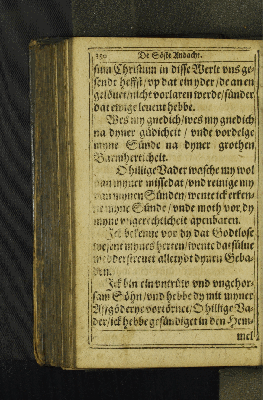 De Söste Andacht.
sum Christum in disse Werlt vns ge-
sendt heffst / vp dat ein yder / de an en
gelövet / nicht vorlaren werde / sünder
dat ewige leuent hebbe.
Wes my gnedich / wes my gnedich
na dyner güdicheit / vnde vordelge
myne Sünde na dyner grothen
Barmherticheit.
O hillige Vader wasche my wol
van myner missedat / vnd reinige my
van mynen Sünden / wente ick erken-
ne myne Sünde / vnde moth vor dy
myne vngerechticheit apenbaren.
Ick bekenne vor dy dat Godtlose
wesent mynes herten / wente dat sülue
wedderstreuet alletydt dynen Geba-
den.
Ick bin ein vntrüw vnd vngehor-
sam Söhn / vnd hebbe dy mit myner
Affgöderye vertörnet / O hillige Va-
der / ick hebbe gesündiget in den Hem-
mel